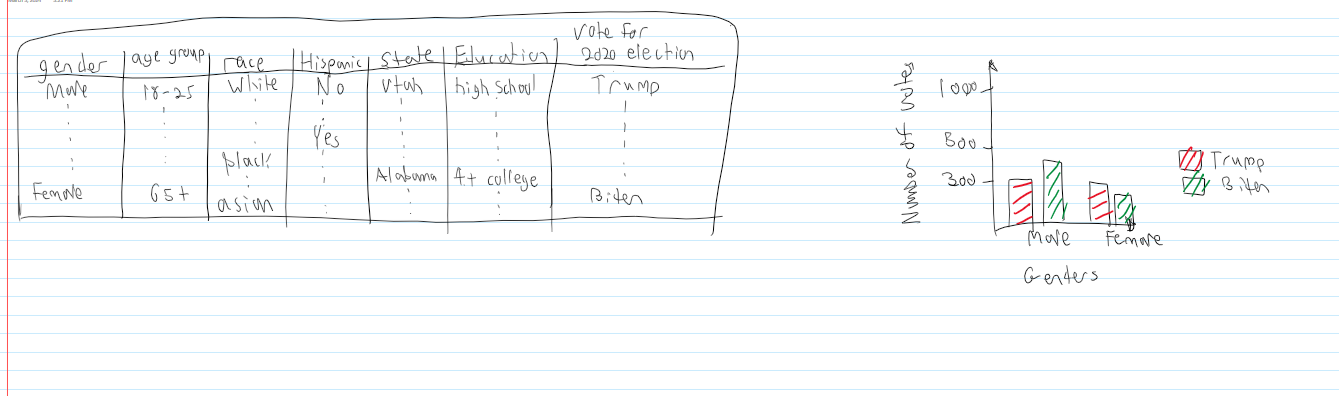 gender age group race Hispanic State Education Vote for 2020 election
Male 18-25 White No Utah high school Trump
Yes
black
Alabama 4+ college
Female 65+ asian Biden
Number of People
1000
500
300
Male Female
Genders
Trump
Biden